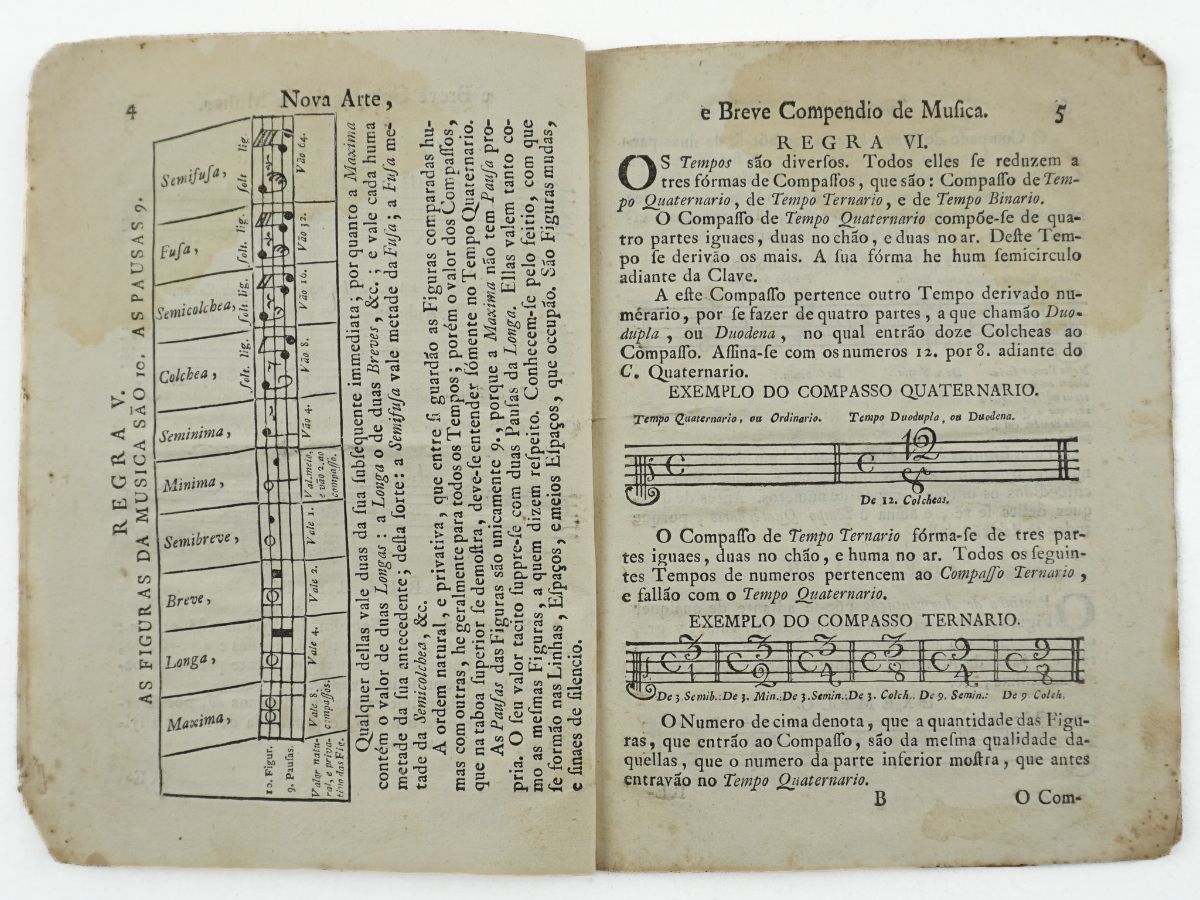 4
Nova Arte,
REGRA V.
AS FIGURAS DA MUSICA SÃO 10. AS PAUSAS 9.
Maxima, Longa, Breve, Semibreve, Minima, Seminima, Colchea, Semicolchea, Fusa, Semifusa,
solt. lig. solt. lig. solt. lig. solt. lig.
10. Figur.
9. Pausas.
Valor natu-
ral, e priva-
tivo das Fig.
Vale 8. compassos. Vale 4. Vale 2. Vale 1. Val. meio, e vão 2. ao compasso. Vão 4. Vão 8. Vão 16. Vão 32. Vão 64.
Qualquer dellas vale duas da ſua ſubſequente immediata; por quanto a Maxima
contém o valor de duas Longas: a Longa o de duas Breves, &c.; e vale cada huma
metade da ſua antecedente; deſta ſorte: a Semifuſa vale metade da Fuſa; a Fuſa me-
tade da Semicolchea, &c.
A ordem natural, e privativa, que entre ſi guardão as Figuras comparadas hu-
mas com outras, he geralmente para todos os Tempos; porém o valor dos Compaſſos,
que na taboa ſuperior ſe demoſtra, deve-ſe entender ſómente no Tempo Quaternario.
As Pauſas das Figuras são unicamente 9., porque a Maxima não tem Pauſa pro-
pria. O ſeu valor tacito ſuppre-ſe com duas Pauſas da Longa. Ellas valem tanto co-
mo as meſmas Figuras, a quem dizem reſpeito. Conhecem-ſe pelo feitio, com que
ſe formão nas Linhas, Eſpaços, e meios Eſpaços, que occupão. São Figuras mudas,
e ſinaes de ſilencio.
e Breve Compendio de Muſica.
5
REGRA VI.
OS Tempos são diverſos. Todos elles ſe reduzem a
tres fórmas de Compaſſos, que são: Compaſſo de Tem-
po Quaternario, de Tempo Ternario, e de Tempo Binario.
O Compaſſo de Tempo Quaternario compõe-ſe de qua-
tro partes iguaes, duas no chão, e duas no ar. Deſte Tem-
po ſe derivão os mais. A ſua fórma he hum ſemicirculo
adiante da Clave.
A eſte Compaſſo pertence outro Tempo derivado nu-
mérario, por ſe fazer de quatro partes, a que chamão Duo-
dupla, ou Duodena, no qual entrão doze Colcheas ao
Compaſſo. Aſſina-ſe com os numeros 12. por 8. adiante do
C. Quaternario.
EXEMPLO DO COMPASSO QUATERNARIO.
Tempo Quaternario, ou Ordinario. Tempo Duodupla, ou Duodena.
C C 12 8
De 12. Colcheas.
O Compaſſo de Tempo Ternario fórma-ſe de tres par-
tes iguaes, duas no chão, e huma no ar. Todos os ſeguin-
tes Tempos de numeros pertencem ao Compaſſo Ternario,
e fallão com o Tempo Quaternario.
EXEMPLO DO COMPASSO TERNARIO.
C 3 1 C 3 2 C 3 4 C 3 8 C 9 4 C 9 8
De 3 Semib.: De 3. Min.: De 3. Semin.: De 3. Colch.. De 9. Semin.: De 9. Colch.
O Numero de cima denota, que a quantidade das Figu-
ras, que entrão ao Compaſſo, são da meſma qualidade da-
quellas, que o numero da parte inferior moſtra, que antes
entravão no Tempo Quaternario.
B
O Com-